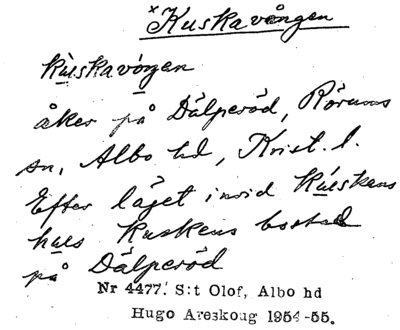 ×Kuskavången
kuskavången
åker på Dälperöd, Rörums
sn, Albo hd, Krist. l.
Efter läget invid Kuskens
hus Kuskens bostad
på Dälperöd
Nr 4477. S:t Olof, Albo hd
Hugo Areskoug 1954-55.